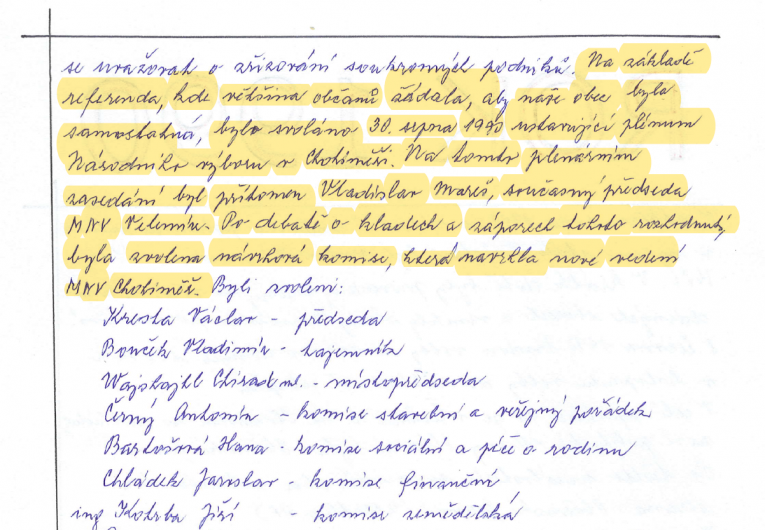 se uvažovat o zřizování soukromých podniků. Na základě
referenda, kde většina občanů žádala, aby naše obec byla
samostatná, bylo svoláno 30. srpna 1990 ustavující plénum
Národního výboru v Chotiměři. Na tomto plenárním
zasedání byl přítomen Vladislav Mareš, současný předseda
MNV Velemín. Po debatě o kladech a záporech tohoto rozhodnutí,
byla zvolena návrhová komise, která navrhla nové vedení
MNV Chotiměř. Byli zvoleni:
Kresta Václav - předseda
Bouček Vladimír - tajemník
ml. - místopředseda
Černý Antonín - komise stavební a veřejný pořádek
Bartošová Hana - komise sociální a péče o rodinu
Chládek Jaroslav - komise finanční
ing Kohrba Jiří - komise zemědělská